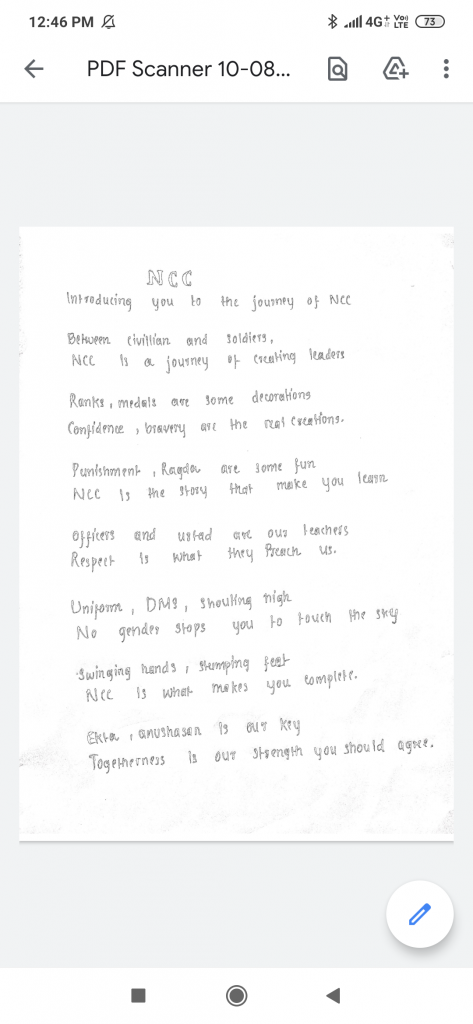 12:46 PM
4G+ Vo) LTE 73
PDF Scanner 10-08...
NCC
Introducing you to the journey of NCC
Between civillian and soldiers,
NCC is a journey of creating leaders
Ranks, medals are some decorations
Confidence, bravery are the real creations.
Punishment, Ragda are some fun
NCC is the story that make you learn
officers and ustad are our teachers
Respect is what they Preach us.
Uniform, DMS, shouting high
No gender stops you to touch the sky
Swinging hands, stumping feet
NCC is what makes you complete.
Ekta, anushasan is our key
Togetherness is our strength you should agree.